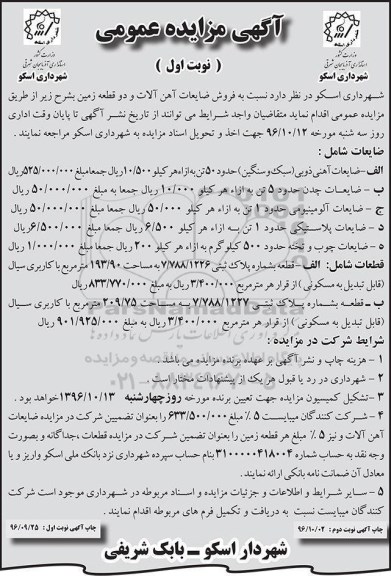 آگهی مزایده عمومی
( نوبت اول )
وزارت کشور
استانداری آذربایجان شرقی
شهرداری اسکو
وزارت کشور
استانداری آذربایجان شرقی
شهرداری اسکو
شهرداری اسکو در نظر دارد نسبت به فروش ضایعات آهن آلات و دو قطعه زمین بشرح زیر از طریق
مزایده عمومی اقدام نماید متقاضیان واجد شرایط می توانند از تاریخ نشر آگهی تا پایان وقت اداری
روز سه شنبه مورخه ۹۶/۱۰/۱۲ جهت اخذ و تحویل اسناد مزایده به شهرداری اسکو مراجعه نمایند .
ضایعات شامل :
الف -ضایعات آهنی ذوبی(سبک وسنگین) حدود ۵۰ تن به ازاء هر کیلو ۱۰/۵۰۰ ریال جمعا مبلغ ۵۲۵/۰۰۰/۰۰۰ریال
ب - ضایعات چدن حدود ۵ تن به ازاء هر کیلو ۱۰/۰۰۰ ریال جمعا به مبلغ ۵۰/۰۰۰/۰۰۰ ریال
ج - ضایعات آلومینیومی حدود ۱ تن به ازاء هر کیلو ۵۰/۰۰۰ ریال جمعا مبلغ ۵۰/۰۰۰/۰۰۰ ریال
د - ضایعات پلاستیکی حدود ۱ تن به ازاء هر کیلو ۶/۵۰۰ ریال جمعا مبلغ ۶/۵۰۰/۰۰۰ریال
ه - ضایعات چوب و تخته حدود ۵۰۰ کیلو گرم به ازاء هر کیلو ۲۰۰ ریال جمعا مبلغ ۱/۰۰۰/۰۰۰ ریال
قطعات شامل: الف -قطعه بشماره پلاک ثبتی ۷/۷۸۸/۱۲۲۶ به مساحت ۱۹۳/۹۰ مترمربع با کاربری سیال
(قابل تبدیل به مسکونی ) از قرار هر مترمربع ۳/۴۰۰/۰۰۰ ریال به مبلغ ۸۳۳/۷۷۰/۰۰۰ریال
ب -قطعه بشماره پلاک ثبتی ۷/۷۸۸/۱۲۲۷ به مساحت ۲۰۹/۷۵ مترمربع با کاربری سیال
(قابل تبدیل به مسکونی ) از قرار هر مترمربع ۳/۴۰۰/۰۰۰ ریال به مبلغ ۹۰۱/۹۲۵/۰۰۰ ریال
شرایط شرکت در مزایده :
۱ - هزینه چاپ و نشر آگهی بر عهده برنده مزایده می باشد.
۲ - شهرداری در رد یا قبول هر یک از پیشنهادات مختار است .
۳ -تشکیل کمیسیون مزایده جهت تعیین برنده مورخه روز چهارشنبه ۱۳۹۶/۱۰/۱۳ خواهد بود .
۴ - شرکت کنندگان میبایست ۵ ٪ مبلغ ۶۳۳/۵۰۰/۰۰۰ را بعنوان تضمین شرکت در مزایده ضایعات
آهن آلات و نیز ۵ ٪ مبلغ هر قطعه زمین را بعنوان تضمین شرکت در مزایده قطعات ،جداگانه و بصورت
وجه نقد به حساب شماره ۳۱۰۰۰۰۰۴۱۸۰۰۴ بنام حساب سپرده شهرداری نزد بانک ملی اسکو واریز و یا
معادل آن ضمانت نامه بانکی ارائه نمایند .
۵ - سایر شرایط و اطلاعات و جزئیات مزایده و اسناد مربوطه در شهرداری موجود است شرکت
کنندگان میبایست نسبت به دریافت و تکمیل فرم های مربوطه اقدام نمایند .
چاپ آگهی نوبت دوم : ۹۶/۱۰/۰۲
چاپ آگهی نوبت اول : ۹۶/۰۹/۲۵
شهردار اسکو ــ بابک شریفی
ParsNamadData